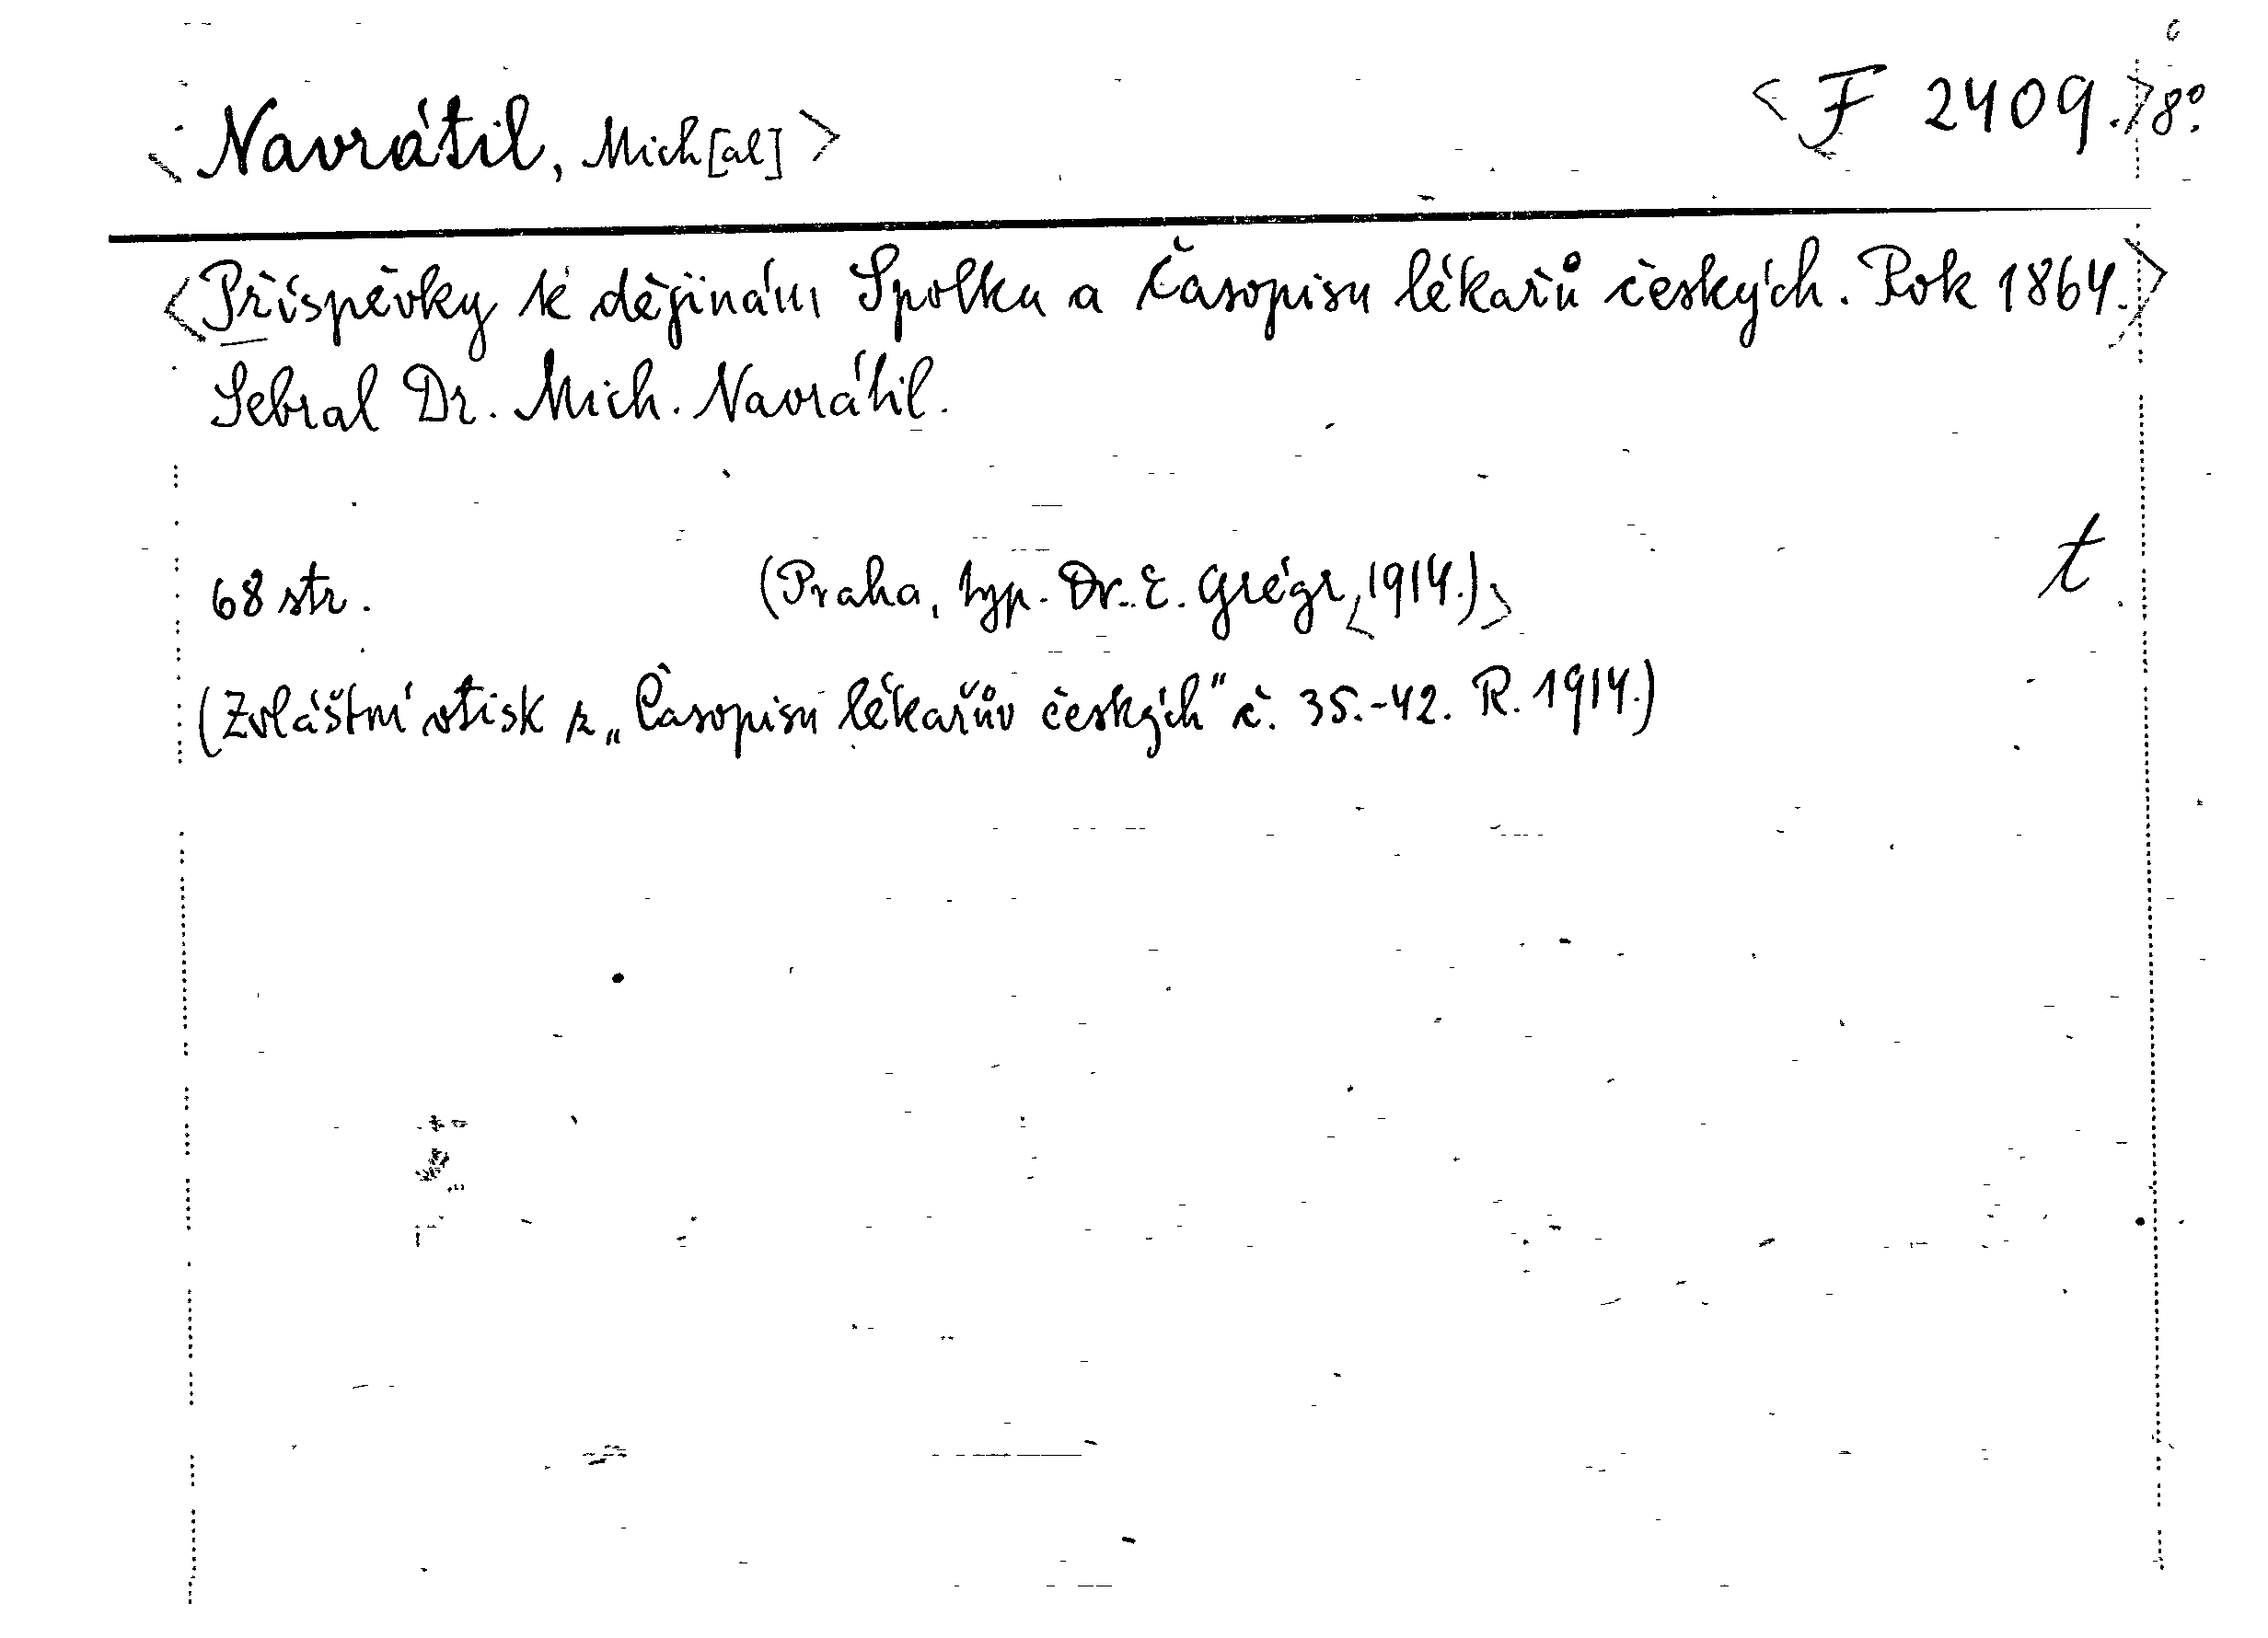 <Navrátil, Mich[al]> <F 2409.>8°.
<Příspěvky k dějinám Spolku a Časopisu lékařů českých. Rok 1864.>
Sebral Dr. Mich. Navrátil.
t
68 str. (Praha, typ. Dr. E. Grégr,<1914.)>
(Zvláštní otisk z „Časopisu lékařův českých" č. 35.-42. R. 1914.)